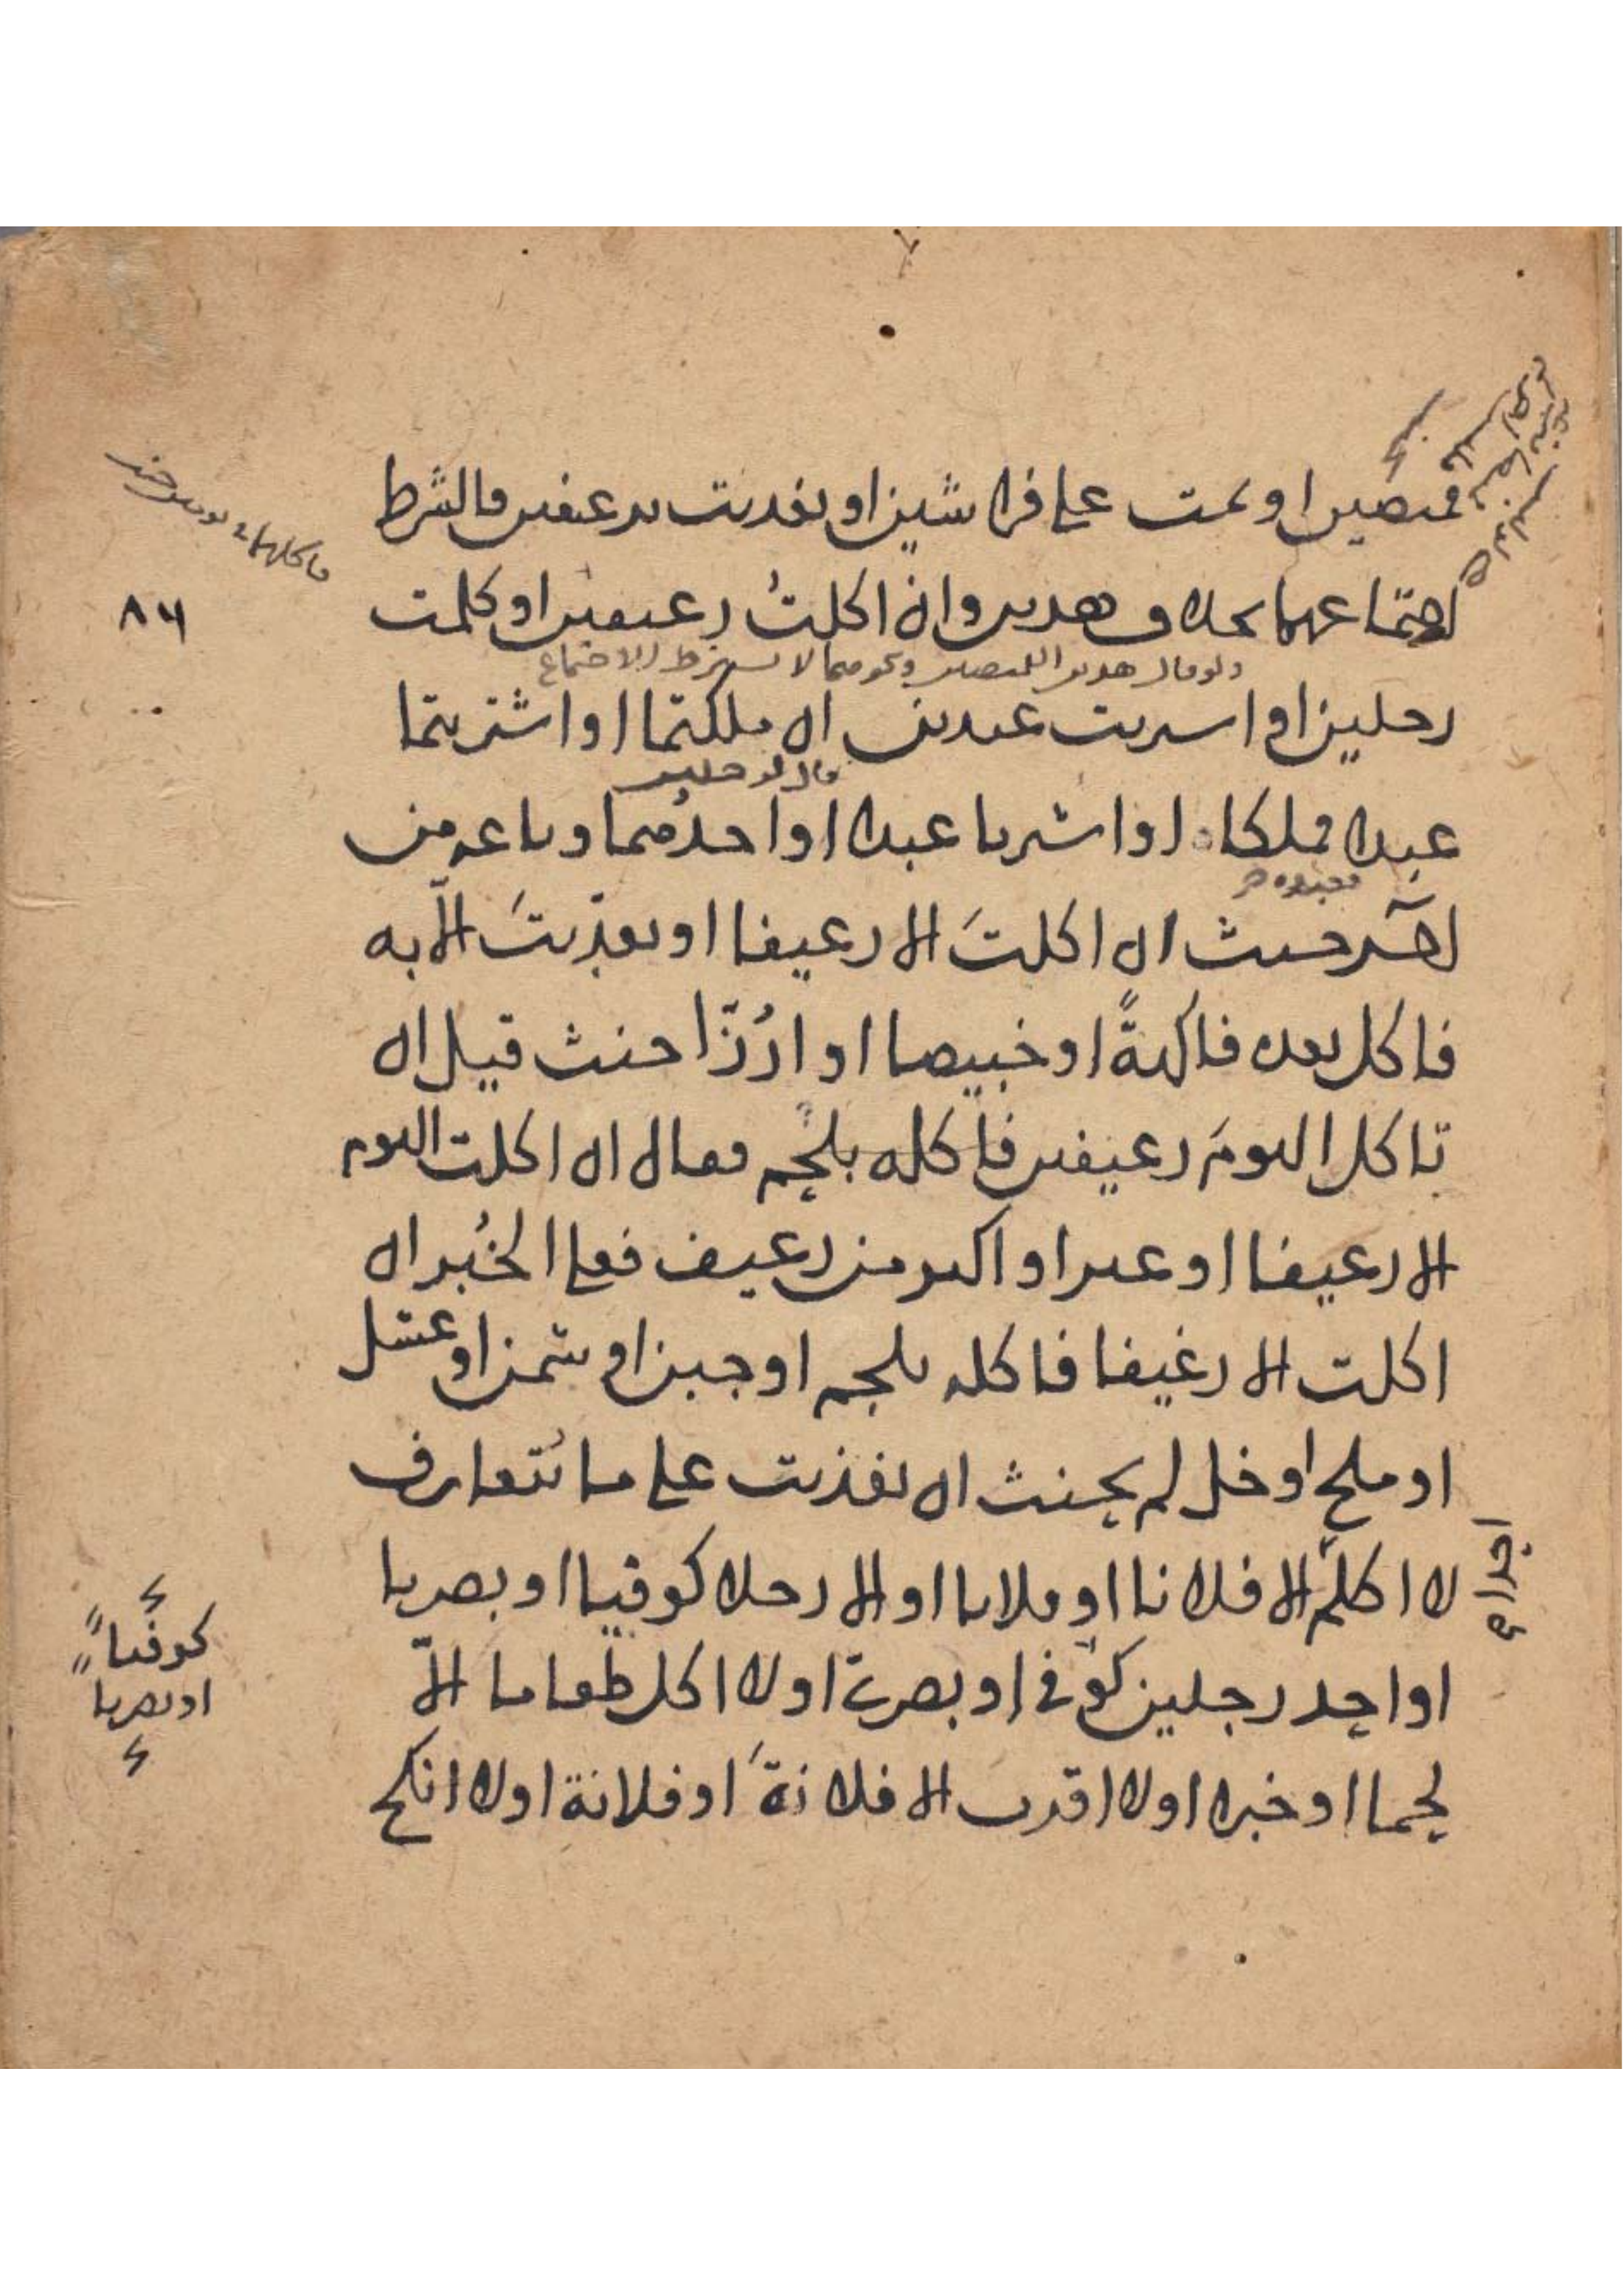 قميصين او نمت على فراشين او تغديت برغيفين فالشرط
اجتماعهما بخلاف هذين وان اكلتُ رغيفين او كلمت
ولو قال هذين القميصين ونحوهما لا يشترط الاجتماع
رجلين او اشتريت عبدين ان ملكتما او اشتريتما
قال لرجلين
عبدا فملكا او اشتريا عبدا او احدهما وباعه من
فعبده حر
آخر حنث ان اكلتَ الا رغيفا او تغذيتَ الّا به
فاكل بعده فاكهةً او خبيصا او ارُزّا حنث قيل ان
تاكل اليومَ رغيفين فاكله بلحم فقال ان اكلت اليوم
الا رغيفا او غير او اكثر من رغيف فعلى الخُبز ان
اكلت الا رغيفا فاكله بلحم او جبن او سمن او عسل
او ملح او خل لم يحنث ان تغذيت على ما تُتعارف
لا اكلّم الا فلانا او فلانا او الا رجلا كوفيا او بصريا
او احد رجلين كوفي او بصري او لا اكل طعاما الّا
لحما او خبزا او لا اقرب الا فلانةَ او فلانة او لا انكح
٨٦
كوفياً
او بصريا